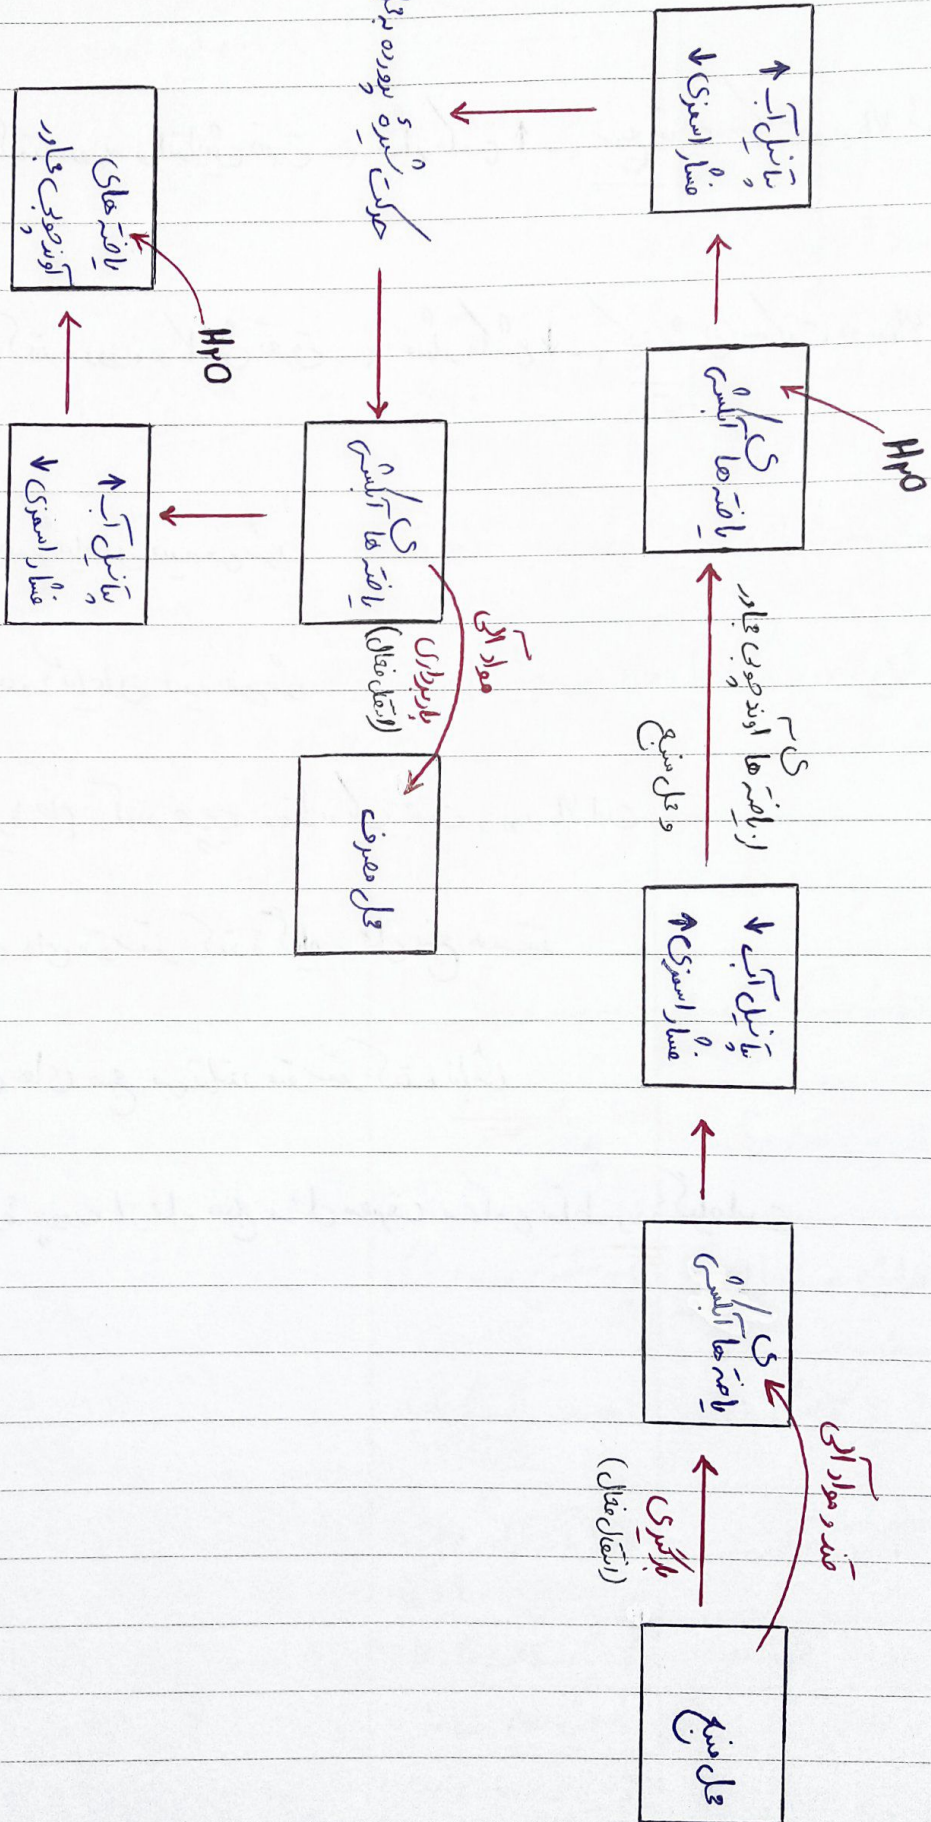 محل منبع
قند و مواد آلی
بارگیری
(انتقال فعال)
یاخته‌های آبکشی
پتانسیل آب ↓
فشار اسمزی ↑
از یاخته‌های آوند چوبی مجاور
و محل منبع
H₂O
یاخته‌های آبکشی
پتانسیل آب ↑
فشار اسمزی ↓
حرکت شیرهٔ پرورده
یاخته‌های آبکشی
مواد آلی
باربرداری
(انتقال فعال)
محل مصرف
پتانسیل آب ↑
فشار اسمزی ↓
H₂O
یاخته‌های
آوند چوبی مجاور